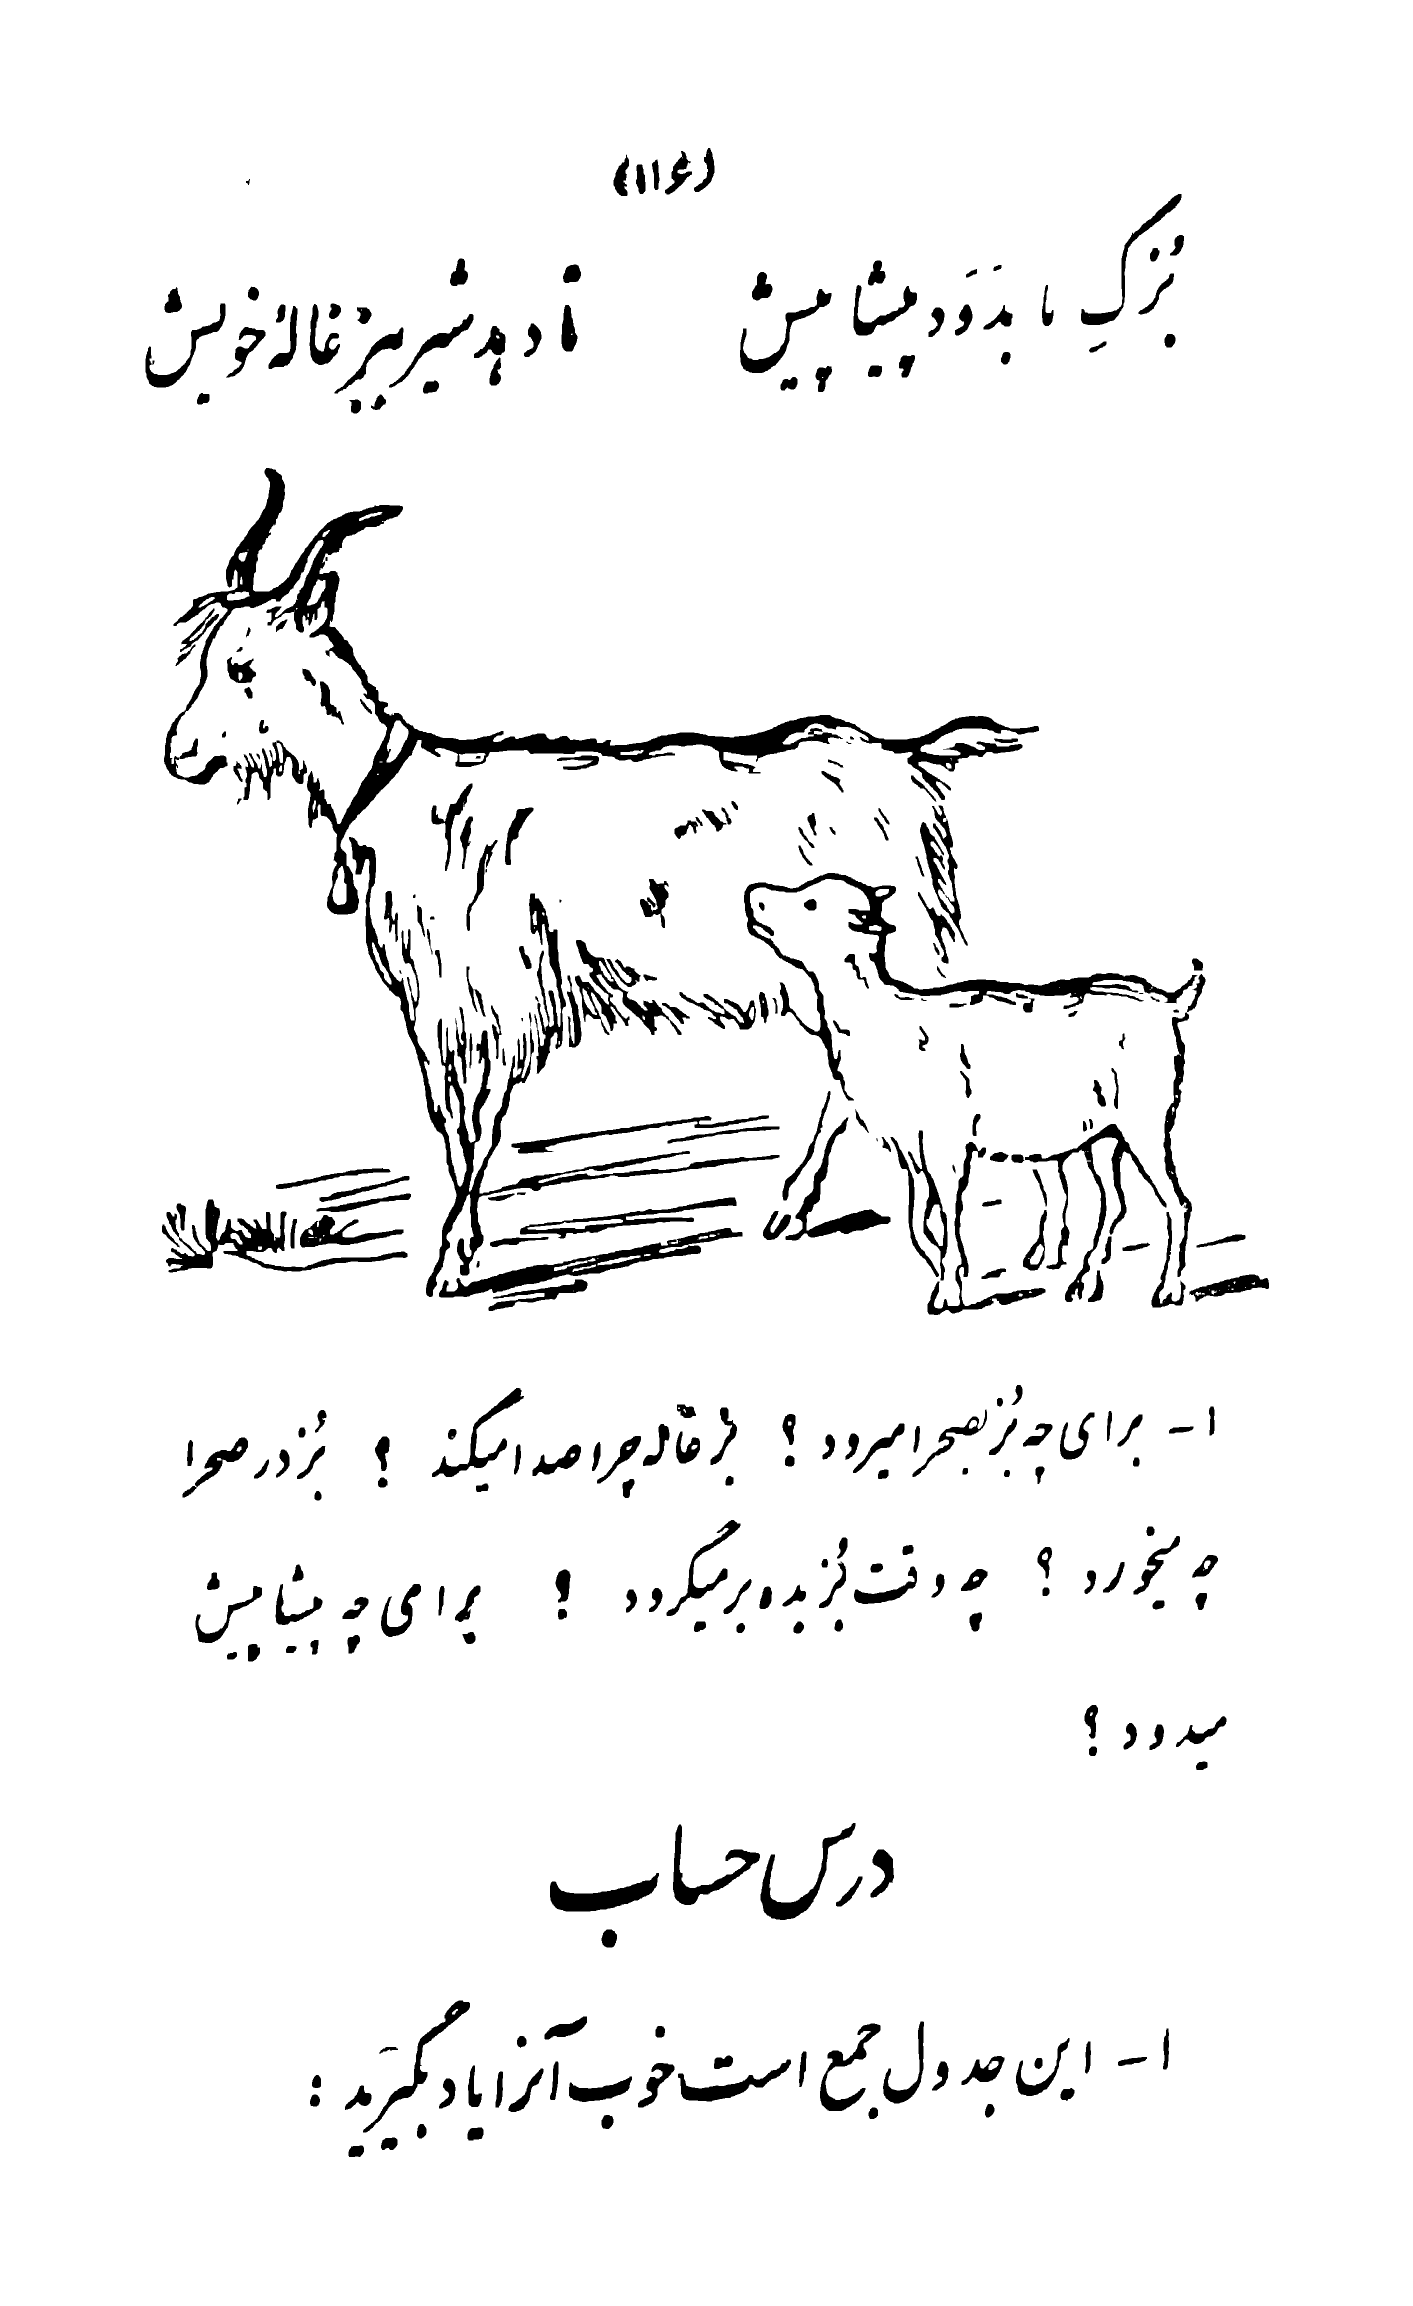 (۱۱۶)
بُزکِ ما بدَوَد پیشاپیش تا دهد شیر ببزغالهٔ خویش
۱- برای چه بُز بصحرا میرود ؟ بزغاله چرا صدا میکند ؟ بُز در صحرا
چه میخورد ؟ چه وقت بُز بده برمیگردد ؟ برای چه پیشاپیش
میدود ؟
درس حساب
۱- این جدول جمع است خوب آنرا یاد بگیرَید :